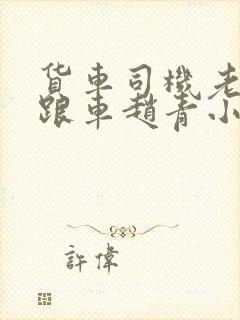 货车司機老
跟車趙青小
許偉